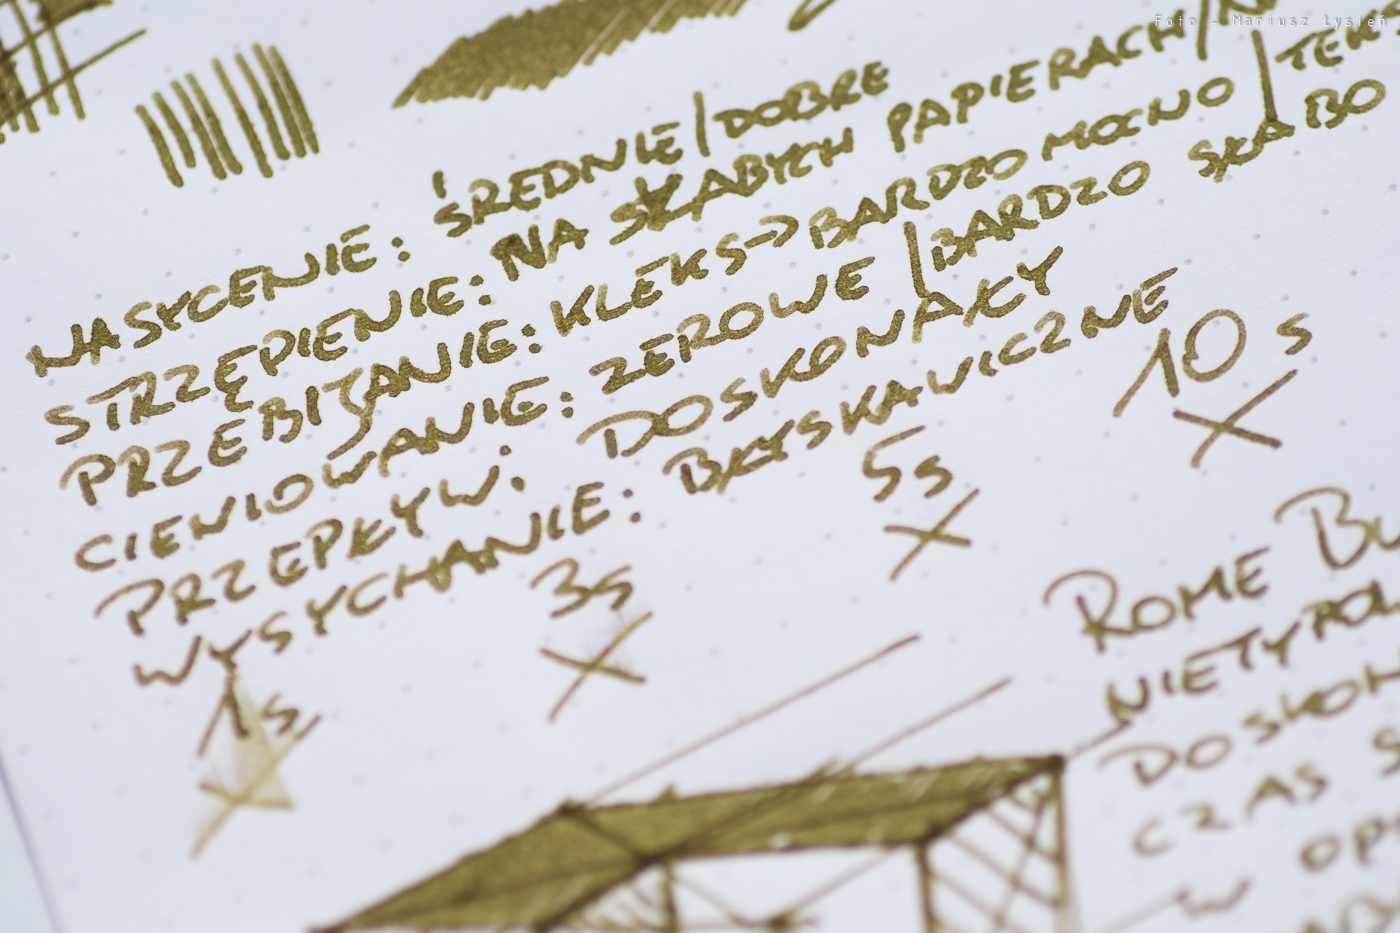 Foto - Mariusz Łysień
NASYCENIE: ŚREDNIE/DOBRE
STRZĘPIENIE: NA SŁABYCH PAPIERACH/
PRZEBIJANIE: KLEKS->BARDZO MOCNO/TEKS
CIENIOWANIE: ZEROWE/BARDZO SŁABO
PRZEPŁYW: DOSKONAŁY
WYSYCHANIE: BŁYSKAWICZNE
1s 3s 5s 10s
ROME BU
NIETYPOW
DOSKON
CZAS S
W OP